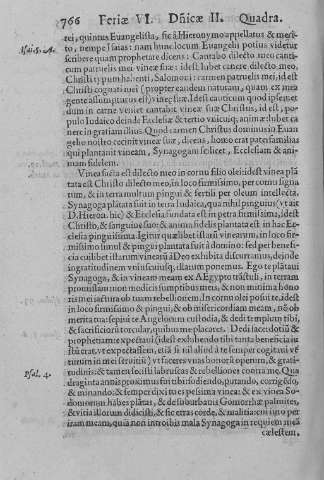 766 Feriæ VI. Dñicæ II. Quadra.
rei, quintus Euangelista, sic à Hieronymo appellatus & merito
Isai. 5. A.
to, nempe Isaias: nam hunc locum Euangelij potius videtur
scribere quam prophetare dicens: Cantabo dilecto meo canticum
cum patruelis mei vineæ suæ: idest lubet canere dilecto meo,
Christi typum habenti, Salomoni: carmen patruelis mei, id est
Christi cognati mei (propter eandem naturam, quam ex mea
gente assumpturus est) vineæ suæ. Idest canticum quod ipsemet
dum in carne veniet cantabit vineæ suæ Christus, id est, populo
pulo Iudaico deinde Ecclesiæ & tertio vnicuiq; animæ
nere in gratiam illius. Quod carmen Christus dominus in Euangelio
gelio nostro cecinit vineæ suæ, dicens, homo erat pater familias
qui plantauit vineam, Synagogam scilicet, Ecclesiam & animam
mam fidelem.
Vinea facta est dilecto meo in cornu filio olei: idest vinea plantata
tata est Christo dilecto meo, in loco firmissimo, per cornu significatur,
tur, & in terra multum pingui & fertili per oleum intellecta.
Synagoga plátata fuit in terra Iudaica, qua nihil pinguius (vt ait
D. Hieron. hic) & Ecclesia fundata est in petra firmissima, idest
Christo, & sanguine suo; & anima fidelis plantata est in hac Ecclesia
clesia pinguissima. Igitur quælibet istarū vinearum, in loco firmissimo
missimo simul & pingui plantata fuit à domino: sed per beneficia
cia cuilibet istarum vinearū à Deo exhibita discurramus, deinde
ingratitudinem vniuscuiusq; illarum ponemus. Ego te plātaui
Synagoga, & in vineam meam ex AEgypto trāstuli, in terram
promissam non modicis sumptibus meis, & non minima honoris
ris mei iactura ob tuam rebellionem. In cornu olei posui te, idest
in loco firmissimo & pingui, & ob misericordiam meam, nō ob
merita tua sepsi te Angelorum custodia, & dedi templum tibi,
& sacrificiorū torcular, quibus me placares. Dedi sacerdotiū &
prophetiam: & expectaui (idest exhibendo tibi tanta beneficia iustū
stū erat, vt expectassem, etiā si nil aliud à te semper cogitaui vētnim
timum in me seruitiū) vt faceres vuas bonorū operum, & gratitudinis:
Psal. 4.
tudinis: & tamen fecisti labruscas & rebelliones contra me. Quadraginta
draginta annis proximus fui tibi sudiendo, putando, corrigēdo,
& minando: & semper dixi tu es pessima vinea: & ex vinea Sodomorum
domorum habes plātas, & de suburbanis Gomorrhæ palmites,
& vitia illorum didicisti, & sic erras corde, & malitia: cui iuro per
iram meam, quia non introibis mala Synagoga in requiem meā
cælestem.